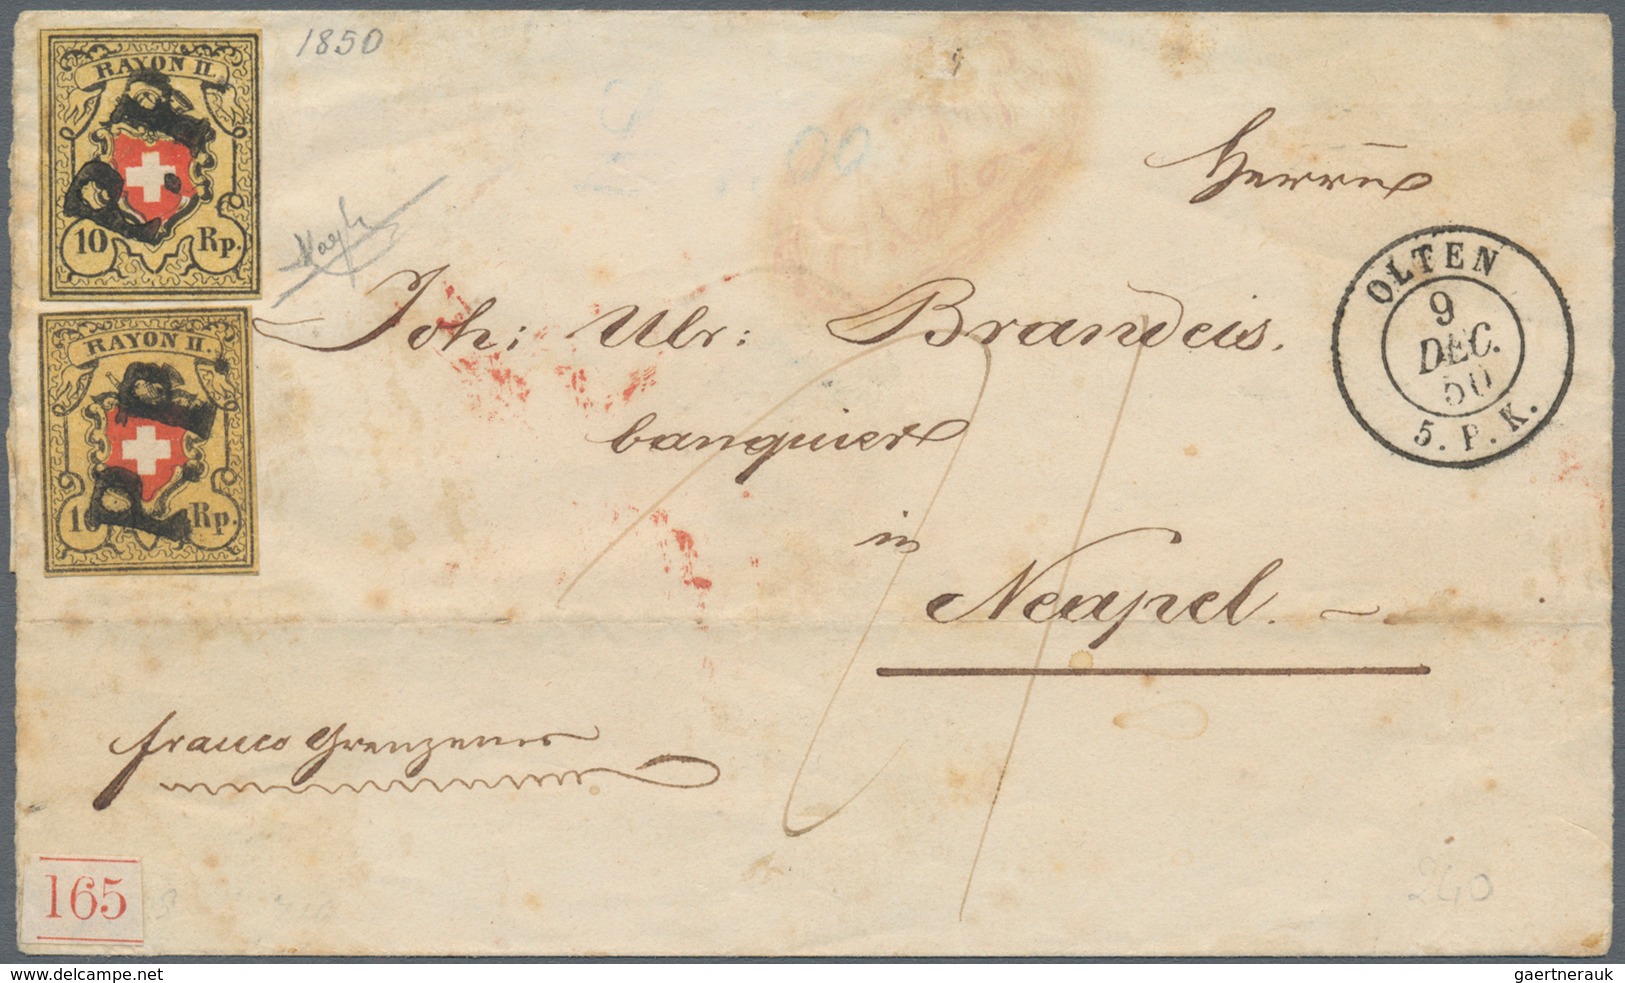 1850
RAYON II.
P.P.
10 Rp.
RAYON II.
P.P.
10 Rp.
Herrn
Joh: Ulr: Brandeis.
banquier
in
Neapel.
OLTEN
9
DEC.
50
5. P. K.
franco
165
240
www.delcampe.net
gaertnerauk